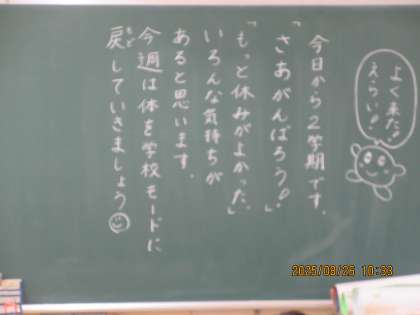 よく来た!
えらい!!
今日から2学期です。
「さあがんばろう!」
「もっと休みがよかった。」
いろんな気持ちが
あると思います。
今週は体を学校モードに
戻していきましょう
もど
2025/08/26 10:33